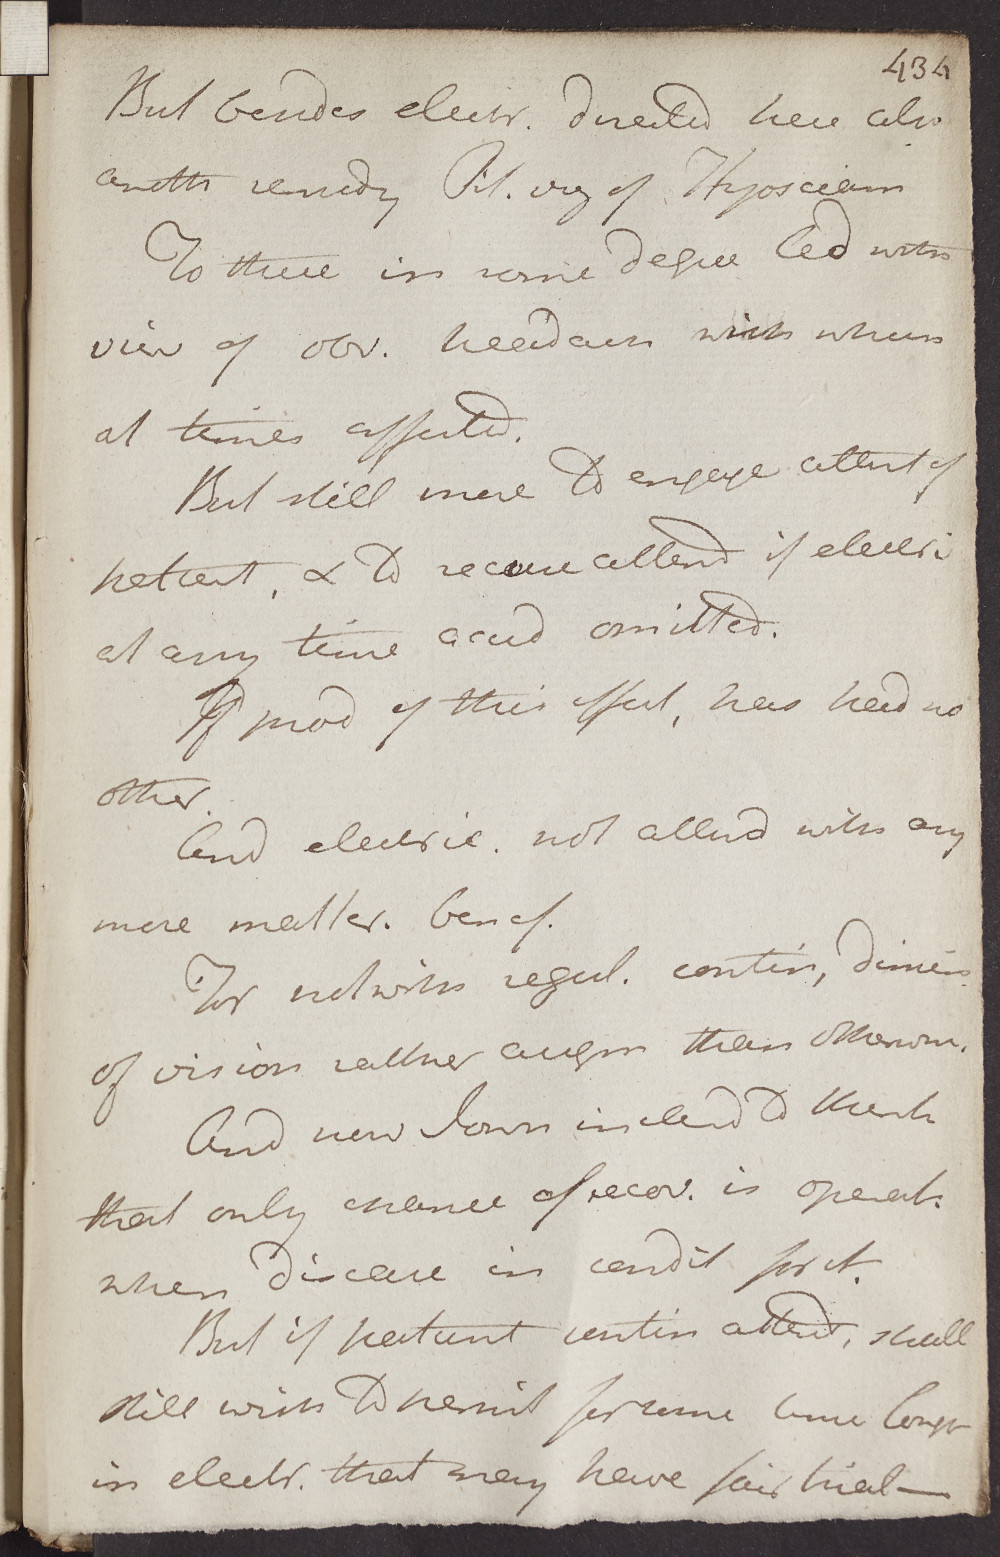 434
But besides electr. directed here also
anothr remedy Pil. of Hyosciam
To these in some degree led with
view of obv. headach with which
at times affected.
But still more to engage attent of
patient, & to secure attend if electri
at any time accid omitted.
If prod of this effect, has had no
other.
And electric. not attend with any
more matter. benef.
For notwith regul. contin, dimin
of vision rather augm than otherwise.
And now I own inclend to think
that only chance of recov. is operat.
when disease in condit for it.
But if patient contin attend, shall
still wish to persist for some time longr
in electr. that may have fair trial—